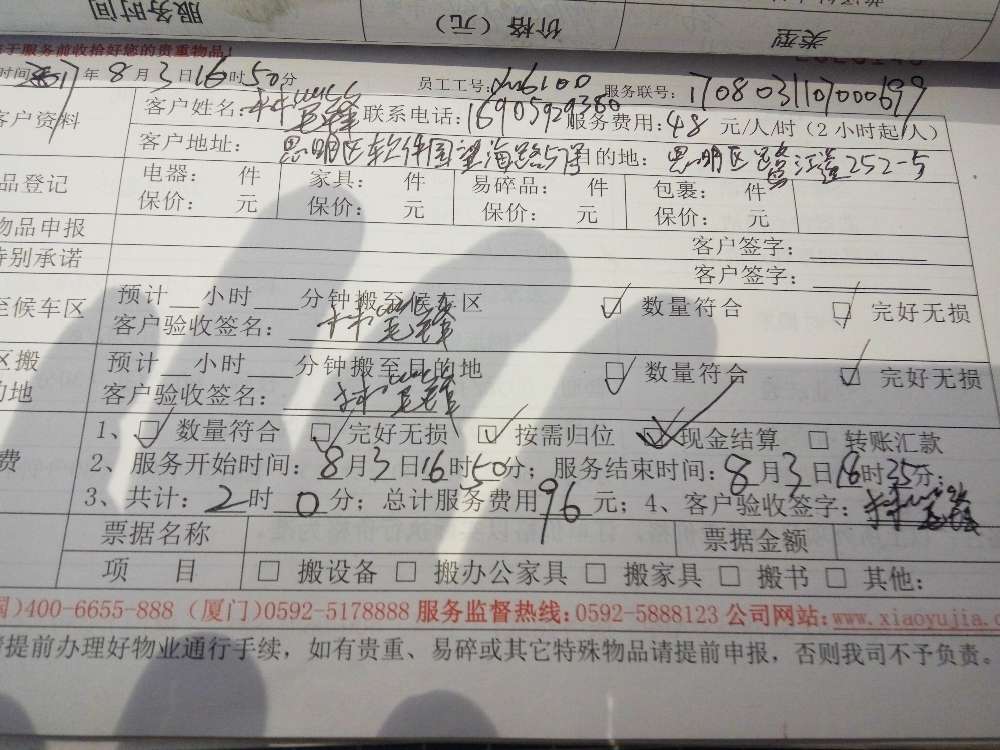 服务时间 价格（元） 类型
于服务前收拾好您的贵重物品！
时间 2017年8月3日16时50分 员工工号: 服务联号: 170803110700069
客户资料 客户姓名: 联系电话: 服务费用: 48 元/人/时（2小时起/人）
客户地址: 思明区软件园望海路 目的地: 思明区 252-5
品登记 电器: 件 家具: 件 易碎品: 件 包裹: 件
保价: 元 保价: 元 保价: 元 保价: 元
物品申报 客户签字:
特别承诺 客户签字:
至候车区 预计 小时 分钟搬至候车区 数量符合 完好无损
客户验收签名:
区搬 预计 小时 分钟搬至目的地 数量符合 完好无损
的地 客户验收签名:
1、 数量符合 完好无损 按需归位 现金结算 转账汇款
费 2、服务开始时间: 8月3日16时50分; 服务结束时间: 8月3日18时35分;
3、共计: 2时0分; 总计服务费用96元; 4、客户验收签字:
票据名称 票据金额
项 目 搬设备 搬办公家具 搬家具 搬书 其他:
国)400-6655-888（厦门)0592-5178888 服务监督热线: 0592-5888123 公司网站: www.xiaoyujia.c
请提前办理好物业通行手续，如有贵重、易碎或其它特殊物品请提前申报，否则我司不予负责。